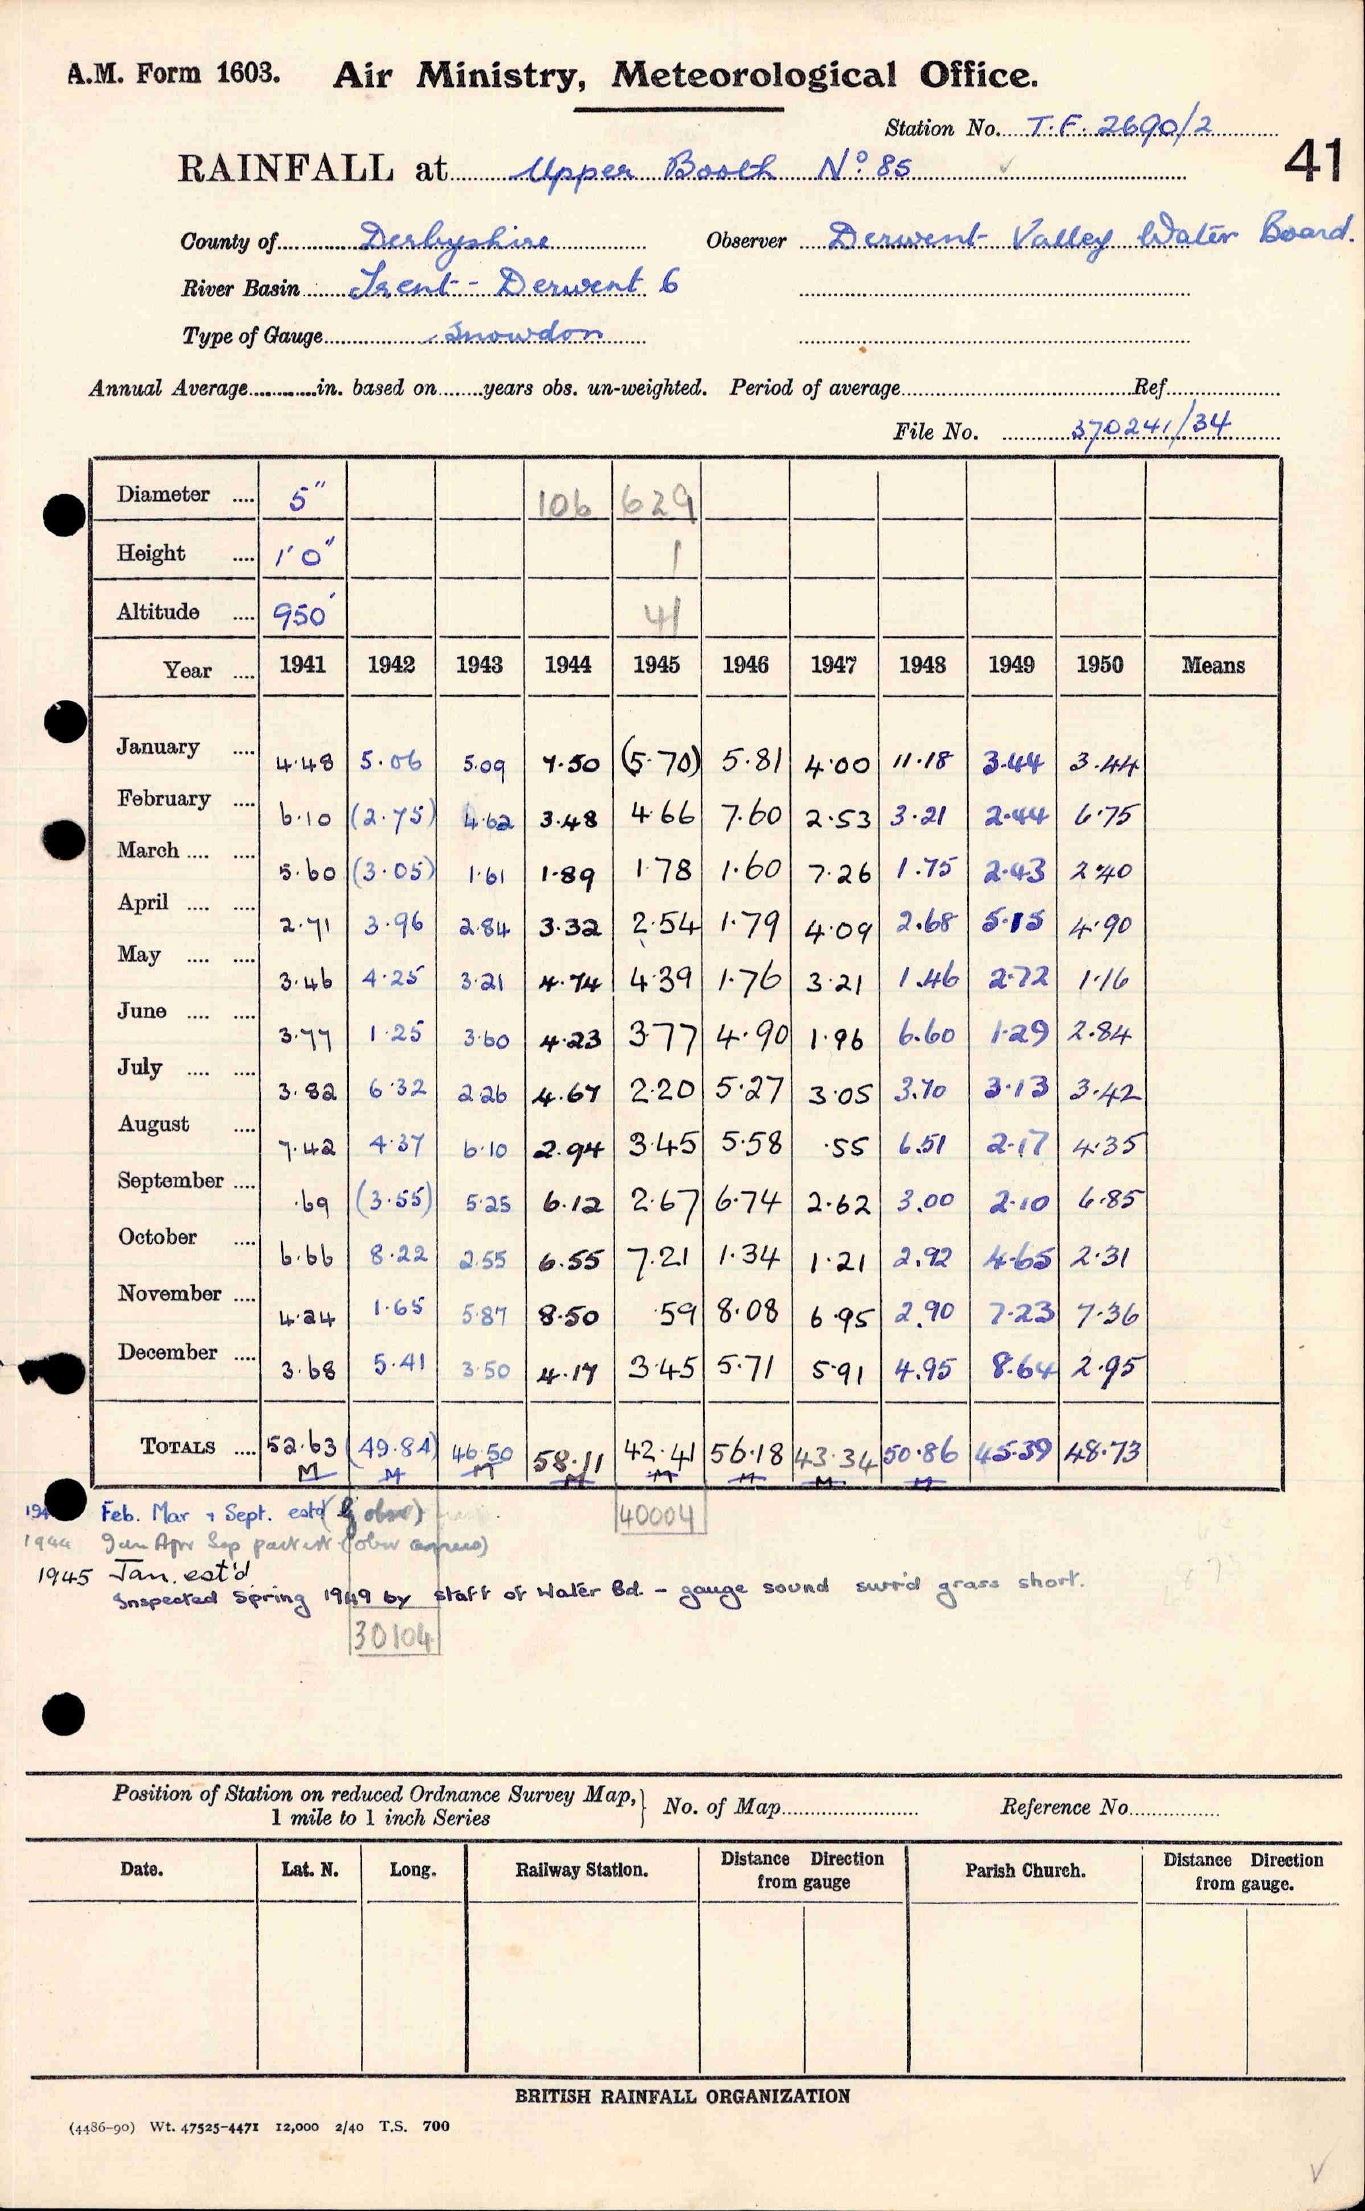 A.M. Form 1603. Air Ministry, Meteorological Office.
Station No. T.F. 2690/2
41
RAINFALL at Upper Booth No. 85
County of Derbyshire Observer Derwent Valley Water Board.
River Basin Trent - Derwent 6
Type of Gauge Snowdon
Annual Average............in. based on........years obs. un-weighted. Period of average............Ref............
File No. 370241/34
Diameter .... 5" 106 629
Height .... 1'0" 1
Altitude .... 950' 41
Year .... 1941 1942 1943 1944 1945 1946 1947 1948 1949 1950 Means
January .... 4.48 5.06 5.09 7.50 (5.70) 5.81 4.00 11.18 3.44 3.44
February .... 6.10 (2.75) 4.62 3.48 4.66 7.60 2.53 3.21 2.44 6.75
March .... .... 5.60 (3.05) 1.61 1.89 1.78 1.60 7.26 1.75 2.43 2.40
April .... .... 2.71 3.96 2.84 3.32 2.54 1.79 4.09 2.68 5.15 4.90
May .... .... 3.46 4.25 3.21 4.74 4.39 1.76 3.21 1.46 2.72 1.16
June .... .... 3.77 1.25 3.60 4.23 3.77 4.90 1.96 6.60 1.29 2.84
July .... .... 3.82 6.32 2.26 4.67 2.20 5.27 3.05 3.70 3.13 3.42
August .... 7.42 4.37 6.10 2.94 3.45 5.58 .55 6.51 2.17 4.35
September .... .69 (3.55) 5.25 6.12 2.67 6.74 2.62 3.00 2.10 6.85
October .... 6.66 8.22 2.55 6.55 7.21 1.34 1.21 2.92 4.65 2.31
November .... 4.24 1.65 5.87 8.50 .59 8.08 6.95 2.90 7.23 7.36
December .... 3.68 5.41 3.50 4.17 3.45 5.71 5.91 4.95 8.64 2.95
TOTALS .... 52.63 (49.84) 46.50 58.11 42.41 56.18 43.34 50.86 45.39 48.73
M M M M M M M M
194 Feb. Mar + Sept. estd (by obsr)
40004
1944 Jan Apr Sep part est (obsr
1945 Jan. est'd
Inspected Spring 1949 by staff of Water Bd. - gauge sound surr'd grass short.
30104
Position of Station on reduced Ordnance Survey Map, 1 mile to 1 inch Series } No. of Map............ Reference No............
Date. Lat. N. Long. Railway Station. Distance Direction from gauge Parish Church. Distance Direction from gauge.
BRITISH RAINFALL ORGANIZATION
(4486-90) Wt. 47525-4471 12,000 2/40 T.S. 700